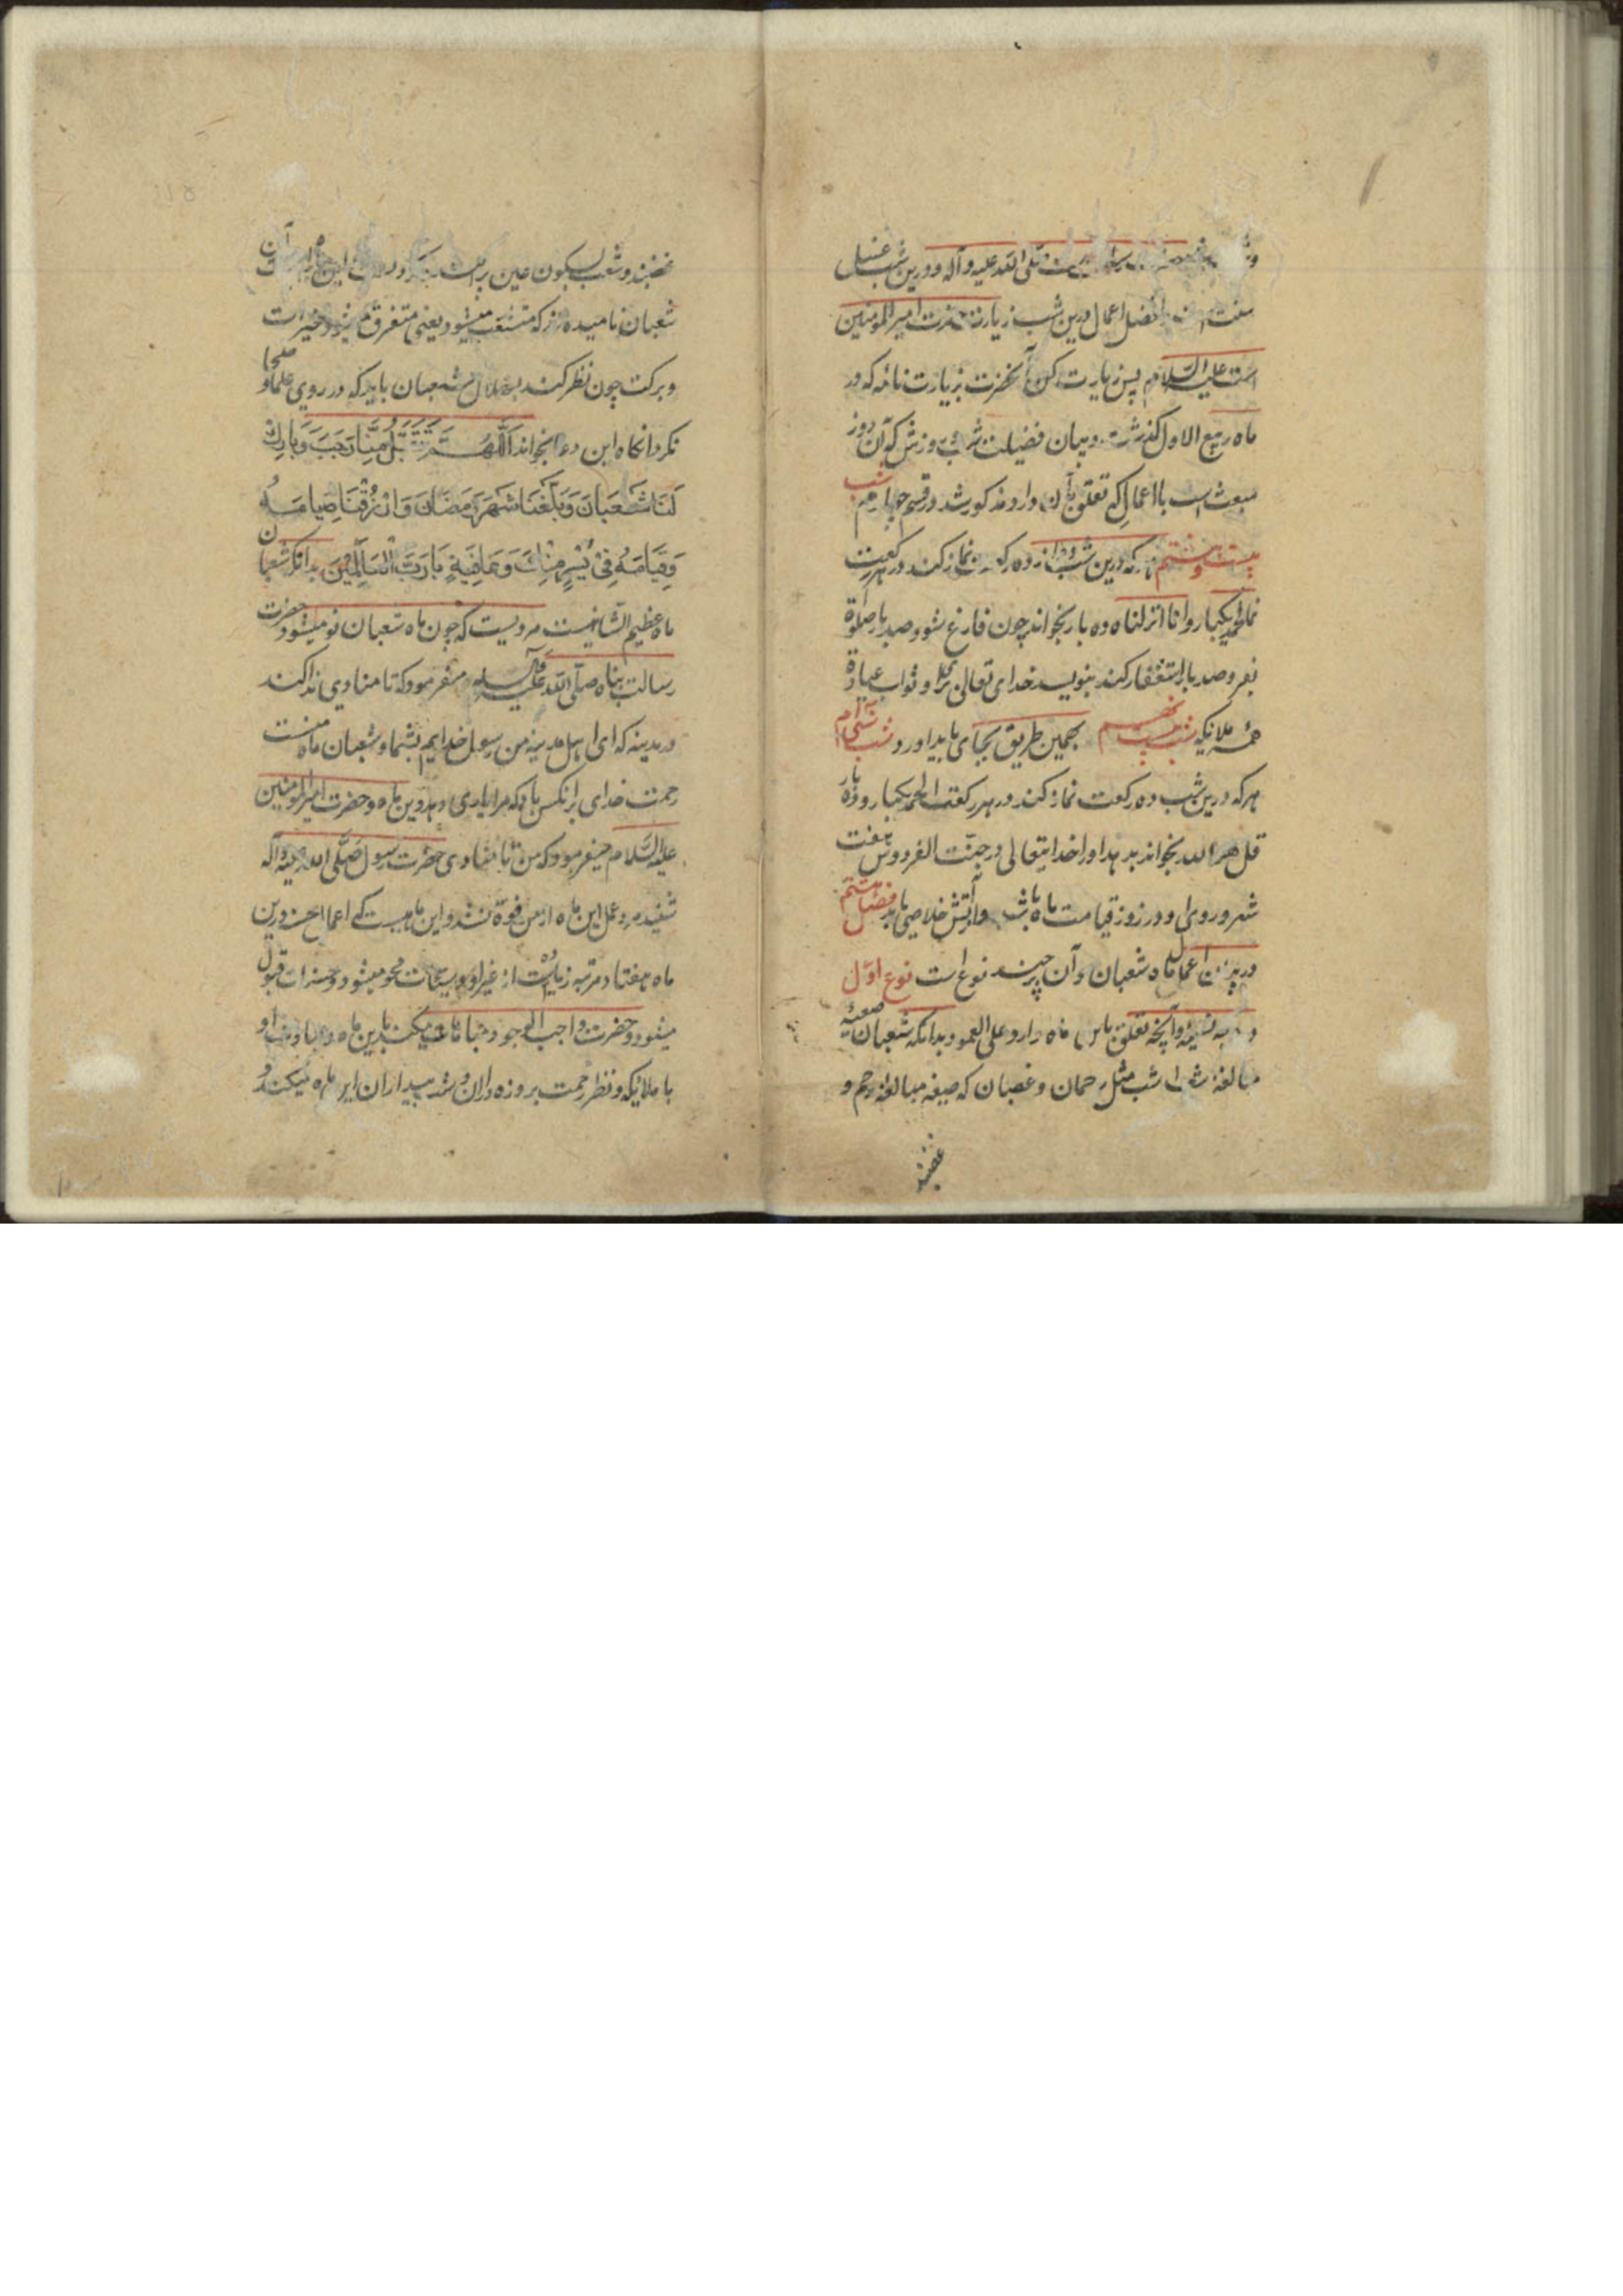 صلی الله علیه و آله و درین شب غسل
سنت است افضل اعمال درین شب زیارت حضرت امیر المؤمنین
است علیه السلام پس زیارت کن آنحضرت بزیارت نامه که در
ماه ربیع الاول گذشت و بیان فضیلت شب و روزش که آن روز
مبعث است با اعمالی که تعلق بآن دارد مذکور شد در قسم چهارم شب
بیست و هشتم هر که درین شب دوازده رکعت نماز کند در هر رکعت
الحمد یکبار و انا انزلناه ده بار بخواند چون فارغ شود صد بار صلوة
بفرستد و صد بار استغفار کند بنویسد خدای تعالی برای او ثواب عبادة
همه ملائیکه شب بیست نهم بهمین طریق بجای باید اورد و شب سی ام
هر که درین شب ده رکعت نماز کند در هر رکعت الحمد یکبار و ده بار
قل هو الله بخواند بدهد او را خدایتعالی در جنت الفردوس هفت
شهر و روی او در روز قیامت ماه باشد و از آتش خلاصی یابد فصل هشتم
در بیان اعمال ماه شعبان و آن چند نوع است نوع اول
وجه تسمیه و آنچه تعلق باین ماه دارد علی العموم بدانکه شعبان صیغه
مبالغه شعب است مثل رحمان و غضبان که صیغه مبالغه رحم و
غضبند
غضبند و شعب بسکون عین
شعبان نامیده اند که متشعب میشود یعنی متفرق میشود خیرات
و برکت چون نظر کند بهلال شعبان باید که در روی علما و صلحا
نگرد انگاه این دعا بخواند اللهم تقبل منا رجب و بارک
لنا شعبان و بلغنا شهر رمضان و ارزقنا صیامه
و قیامه فی یسر منک و عافیة یا رب العالمین بدانکه شعبان
ماه عظیم الشانیست مرویست که چون ماه شعبان نو میشود حضرت
رسالت پناه صلی الله علیه و آله میفرمود که تا منادی ندا کند
در مدینه که ای اهل مدینه من رسول خدایم بشما و شعبان ماه منست
رحمت خدای بر انکس باد که مرا یاری دهد درین ماه و حضرت امیر المؤمنین
علیه السلام میفرمود که من تا منادی حضرت رسول صلی الله علیه و اله
شنیدم عمل این ماه از من فوة نشد و این ماهیست که اعمال حسن درین
ماه هفتاد مرتبه زیاده است از غیر او و سیئات محو میشود و حسنات قبول
میشود و حضرت واجب الوجود مباهات میکند بدین ماه و عبادت او
با ملائیکه و نظر رحمت بروزه داران و شب بیداران این ماه میکند و